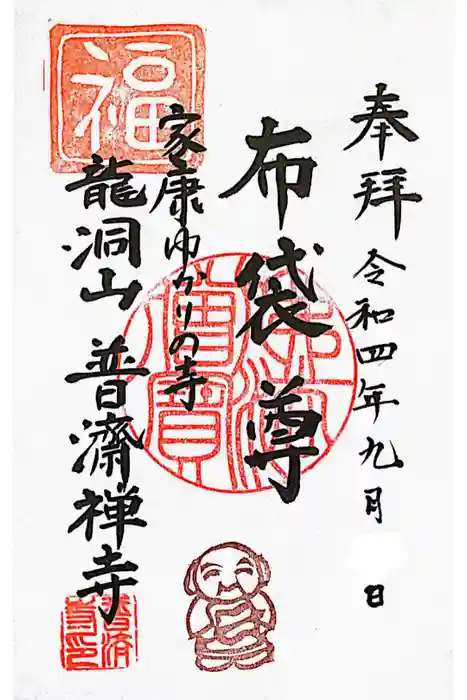 奉拝 令和四年九月 日
布袋尊
家康ゆかりの寺
龍洞山 普濟禅寺
福
佛法僧寶
普済寺印